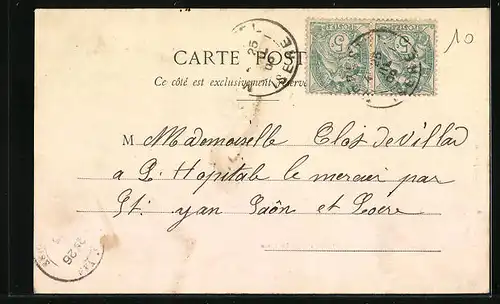 10
CARTE POST
Ce côté est exclusivement réservé
M Mademoiselle Clos de Villard
a L'Hopital le mercier par
St. yan Saône et Loire
ISERE
5
5